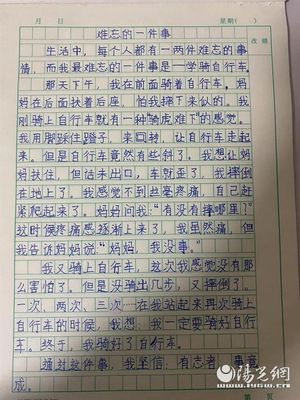 月 日 星期( )
改错
难忘的一件事
生活中，每个人都有一两件难忘的事
情，而我最难忘的一件事是—学骑自行车。
那天下午，我在前面骑着自行车，妈
妈在后面扶着后座，怕我摔下来似的。我
刚骑上自行车就有一种“骑虎难下”的感觉。
我用脚踩住蹬子，来回转，让自行车走起
来。但是自行车竟然有些斜了。我想让妈
妈扶住，但话未出口，车就歪了，我摔倒
在地上了。我感觉不到丝毫疼痛，自己赶
紧爬起来了。妈妈问我：“有没有摔哪里？”
这时候疼痛感逐渐上来了，我虽然痛，但
我告诉妈妈说：“妈妈，我没事。”
我又骑上自行车，这次我感觉没有那
么害怕了。但是没骑出几步，又摔倒了。
一次、两次、三次…在我站起来再次骑上
自行车的时候，我想：我一定要骑好自行
车。终于，我骑好了自行车。
通过这件事，我坚信：有志者，事竟
成。
第 页